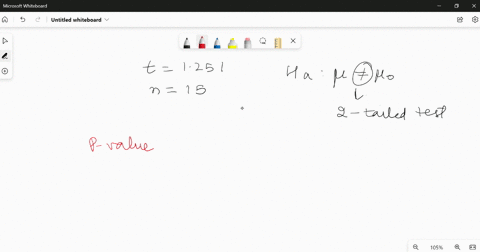 Microsoft Whiteboard
Untitled whiteboard
t = 1.251
n = 15
Ha : μ ≠ μ₀
2-tailed test
P-value
105%